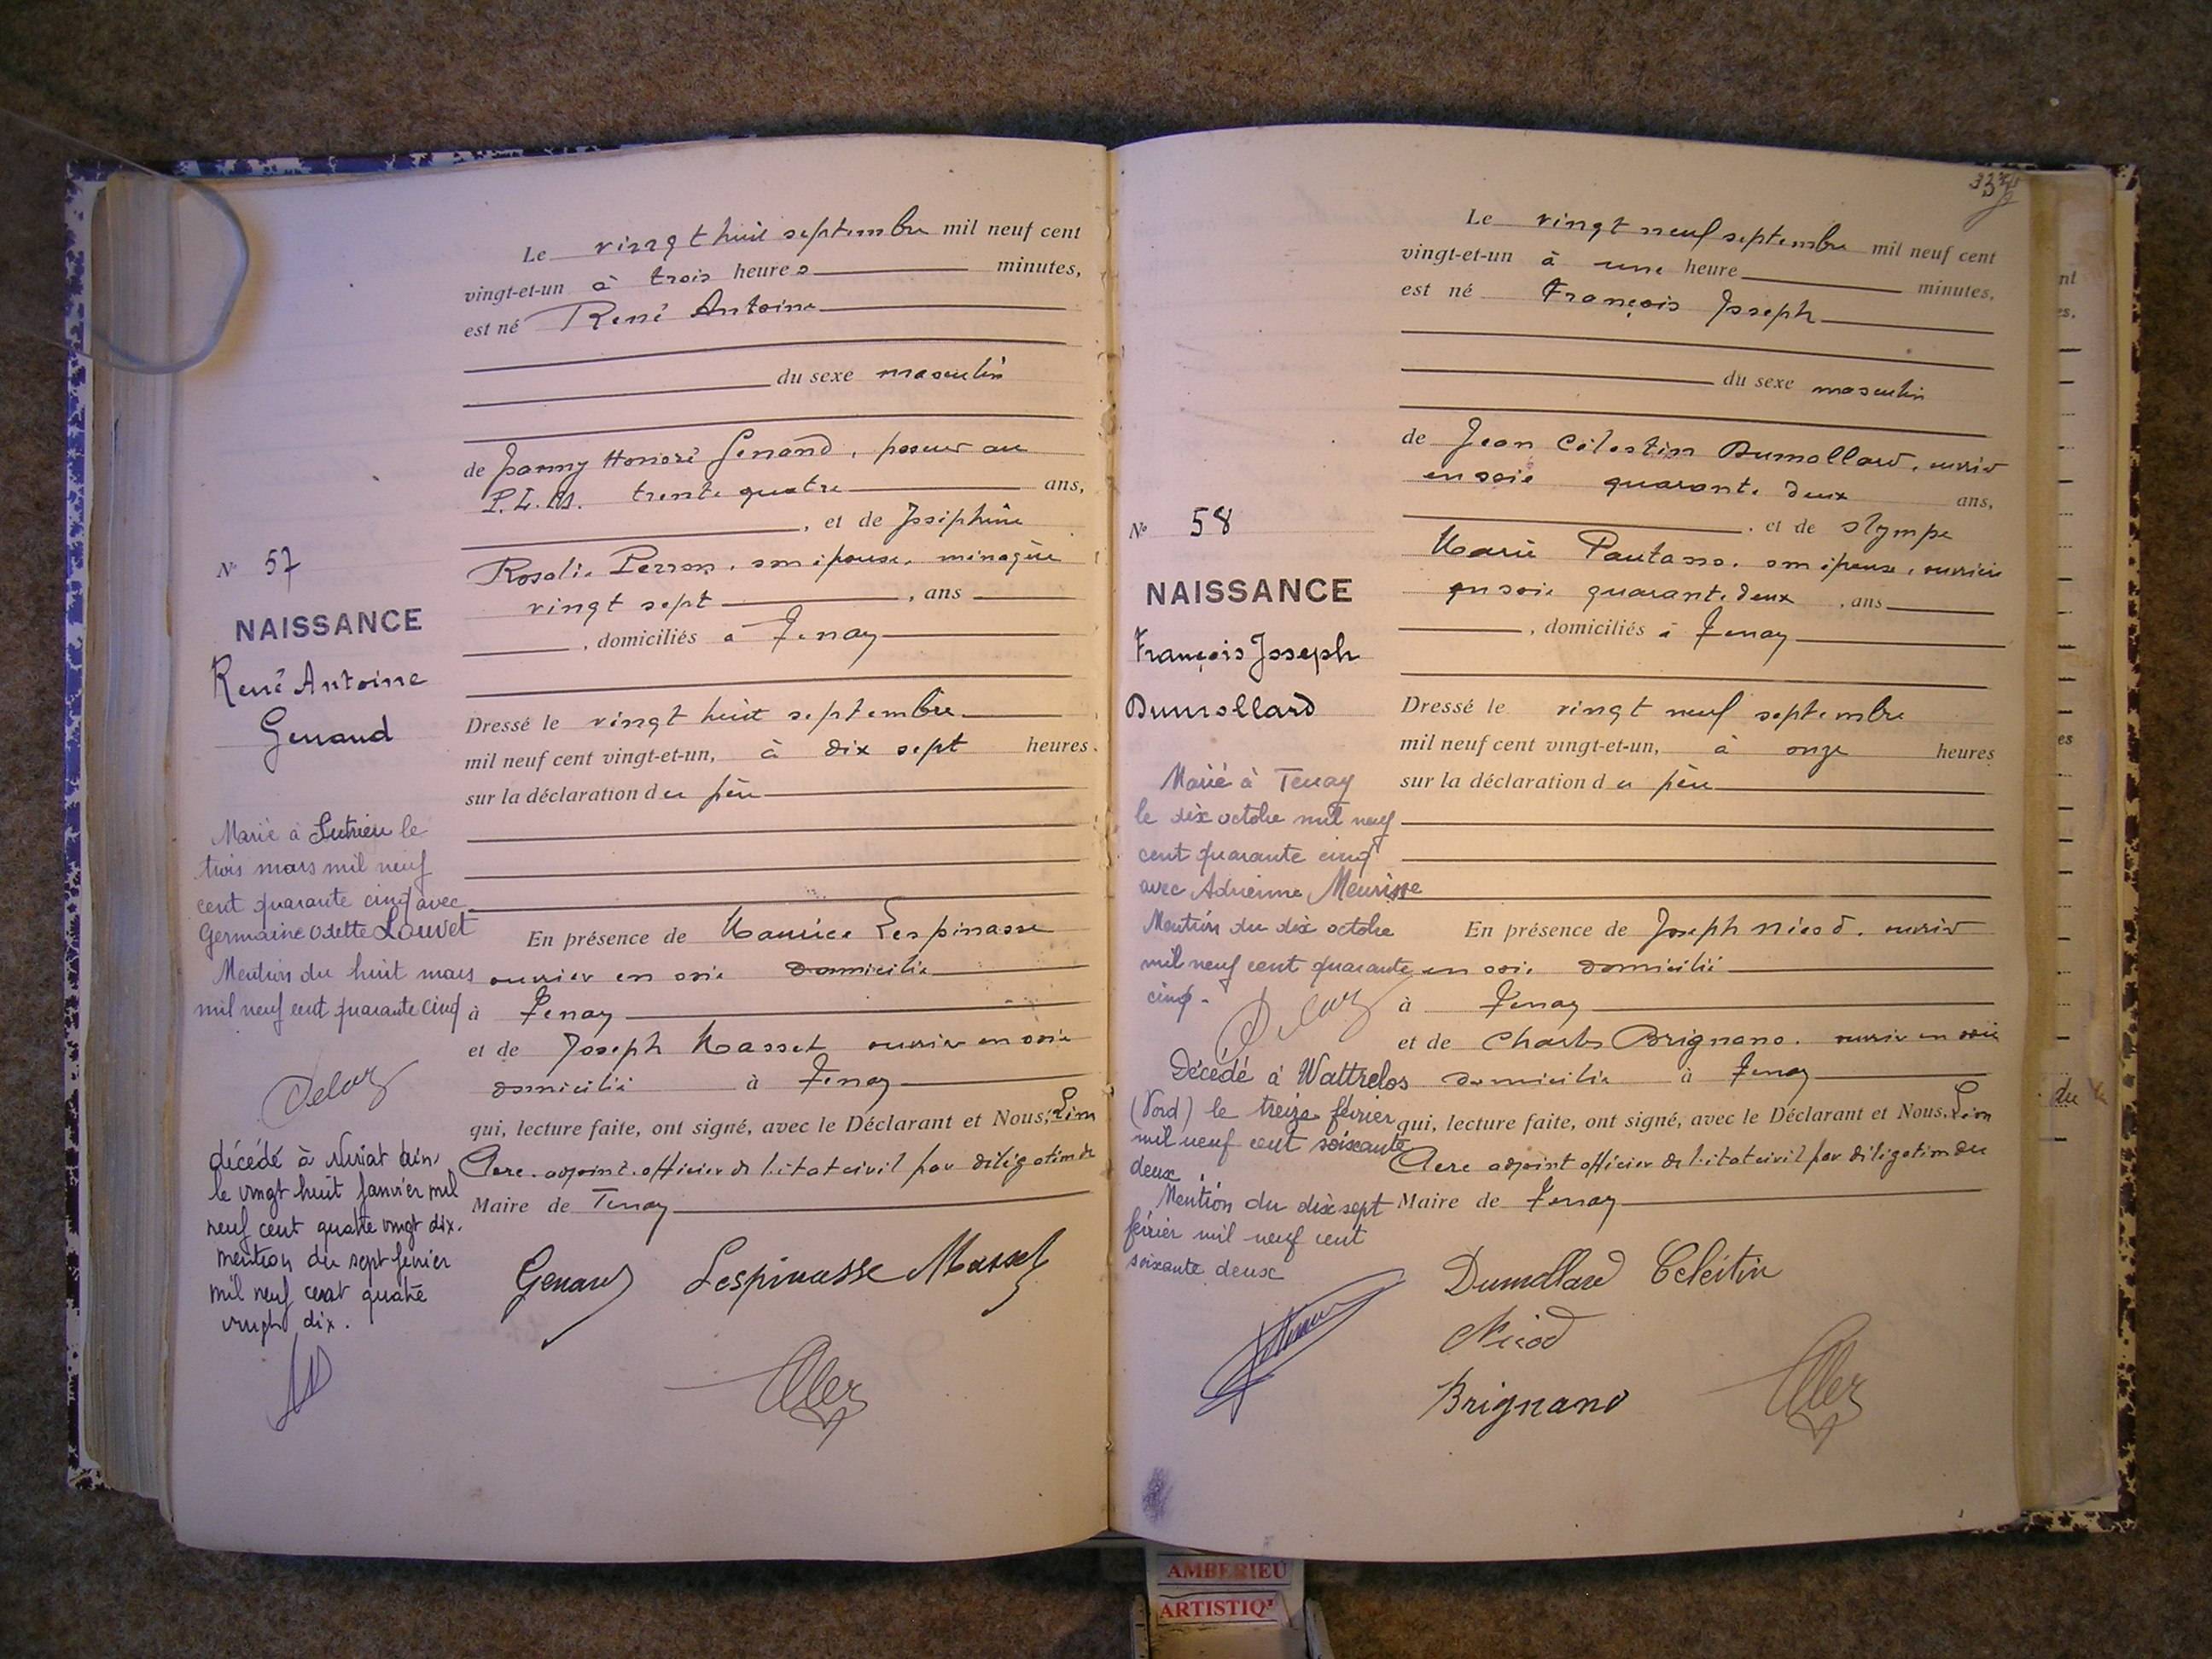 N° 57
NAISSANCE
René Antoine
Genand
Marié à Lutrieu le
trois mars mil neuf
cent quarante cinq avec
Germaine Odette Louvet
Mention du huit mars
mil neuf cent quarante cinq
Delaz
décédé à Neriat Ain
le vingt huit janvier mil
neuf cent quatre vingt dix.
mention du sept février
mil neuf cent quatre
vingt dix.
Le vingt huit septembre mil neuf cent
vingt-et-un à trois heures minutes,
est né René Antoine
du sexe masculin
de Honoré Genand, poseur au
P.L.M. trente quatre ans,
, et de Joséphine
Rosalie Perron, son épouse, ménagère
vingt sept , ans
, domiciliés à Tenay
Dressé le vingt huit septembre
mil neuf cent vingt-et-un, à dix sept heures.
sur la déclaration du père
En présence de Maurice Lespinasse
ouvrier en soie domicilié
à Tenay
et de Joseph Masset ouvrier en soie
domicilié à Tenay
qui, lecture faite, ont signé, avec le Déclarant et Nous, Léon
adjoint officier de l'état civil par délégation du
Maire de Tenay
Genand Lespinasse Masset
33
N° 58
NAISSANCE
François Joseph
Dumollard
Marié à Tenay
le dix octobre mil neuf
cent quarante cinq
avec Adrienne Meurisse
Mention du dix octobre
mil neuf cent quarante
cinq.
Delaz
Décédé à Wattrelos
(Nord) le treize février
mil neuf cent soixante
deux
Mention du dix sept
février mil neuf cent
soixante deux
Le vingt neuf septembre mil neuf cent
vingt-et-un à une heure minutes,
est né François Joseph
du sexe masculin
de Jean Célestin Dumollard, ouvrier
en soie quarante deux ans,
, et de Olympe
Marie Pautasso, son épouse, ouvrière
en soie quarante deux , ans
, domiciliés à Tenay
Dressé le vingt neuf septembre
mil neuf cent vingt-et-un, à onze heures
sur la déclaration du père
En présence de Joseph Nicod, ouvrier
en soie domicilié
à Tenay
et de Charles Brignano, ouvrier en soie
domicilié à Tenay
qui, lecture faite, ont signé, avec le Déclarant et Nous, Léon
adjoint officier de l'état civil par délégation du
Maire de Tenay
Dumollard Célestin
Nicod
Brignano
nt
es,
es
du
AMBERIEU
ARTISTIQ